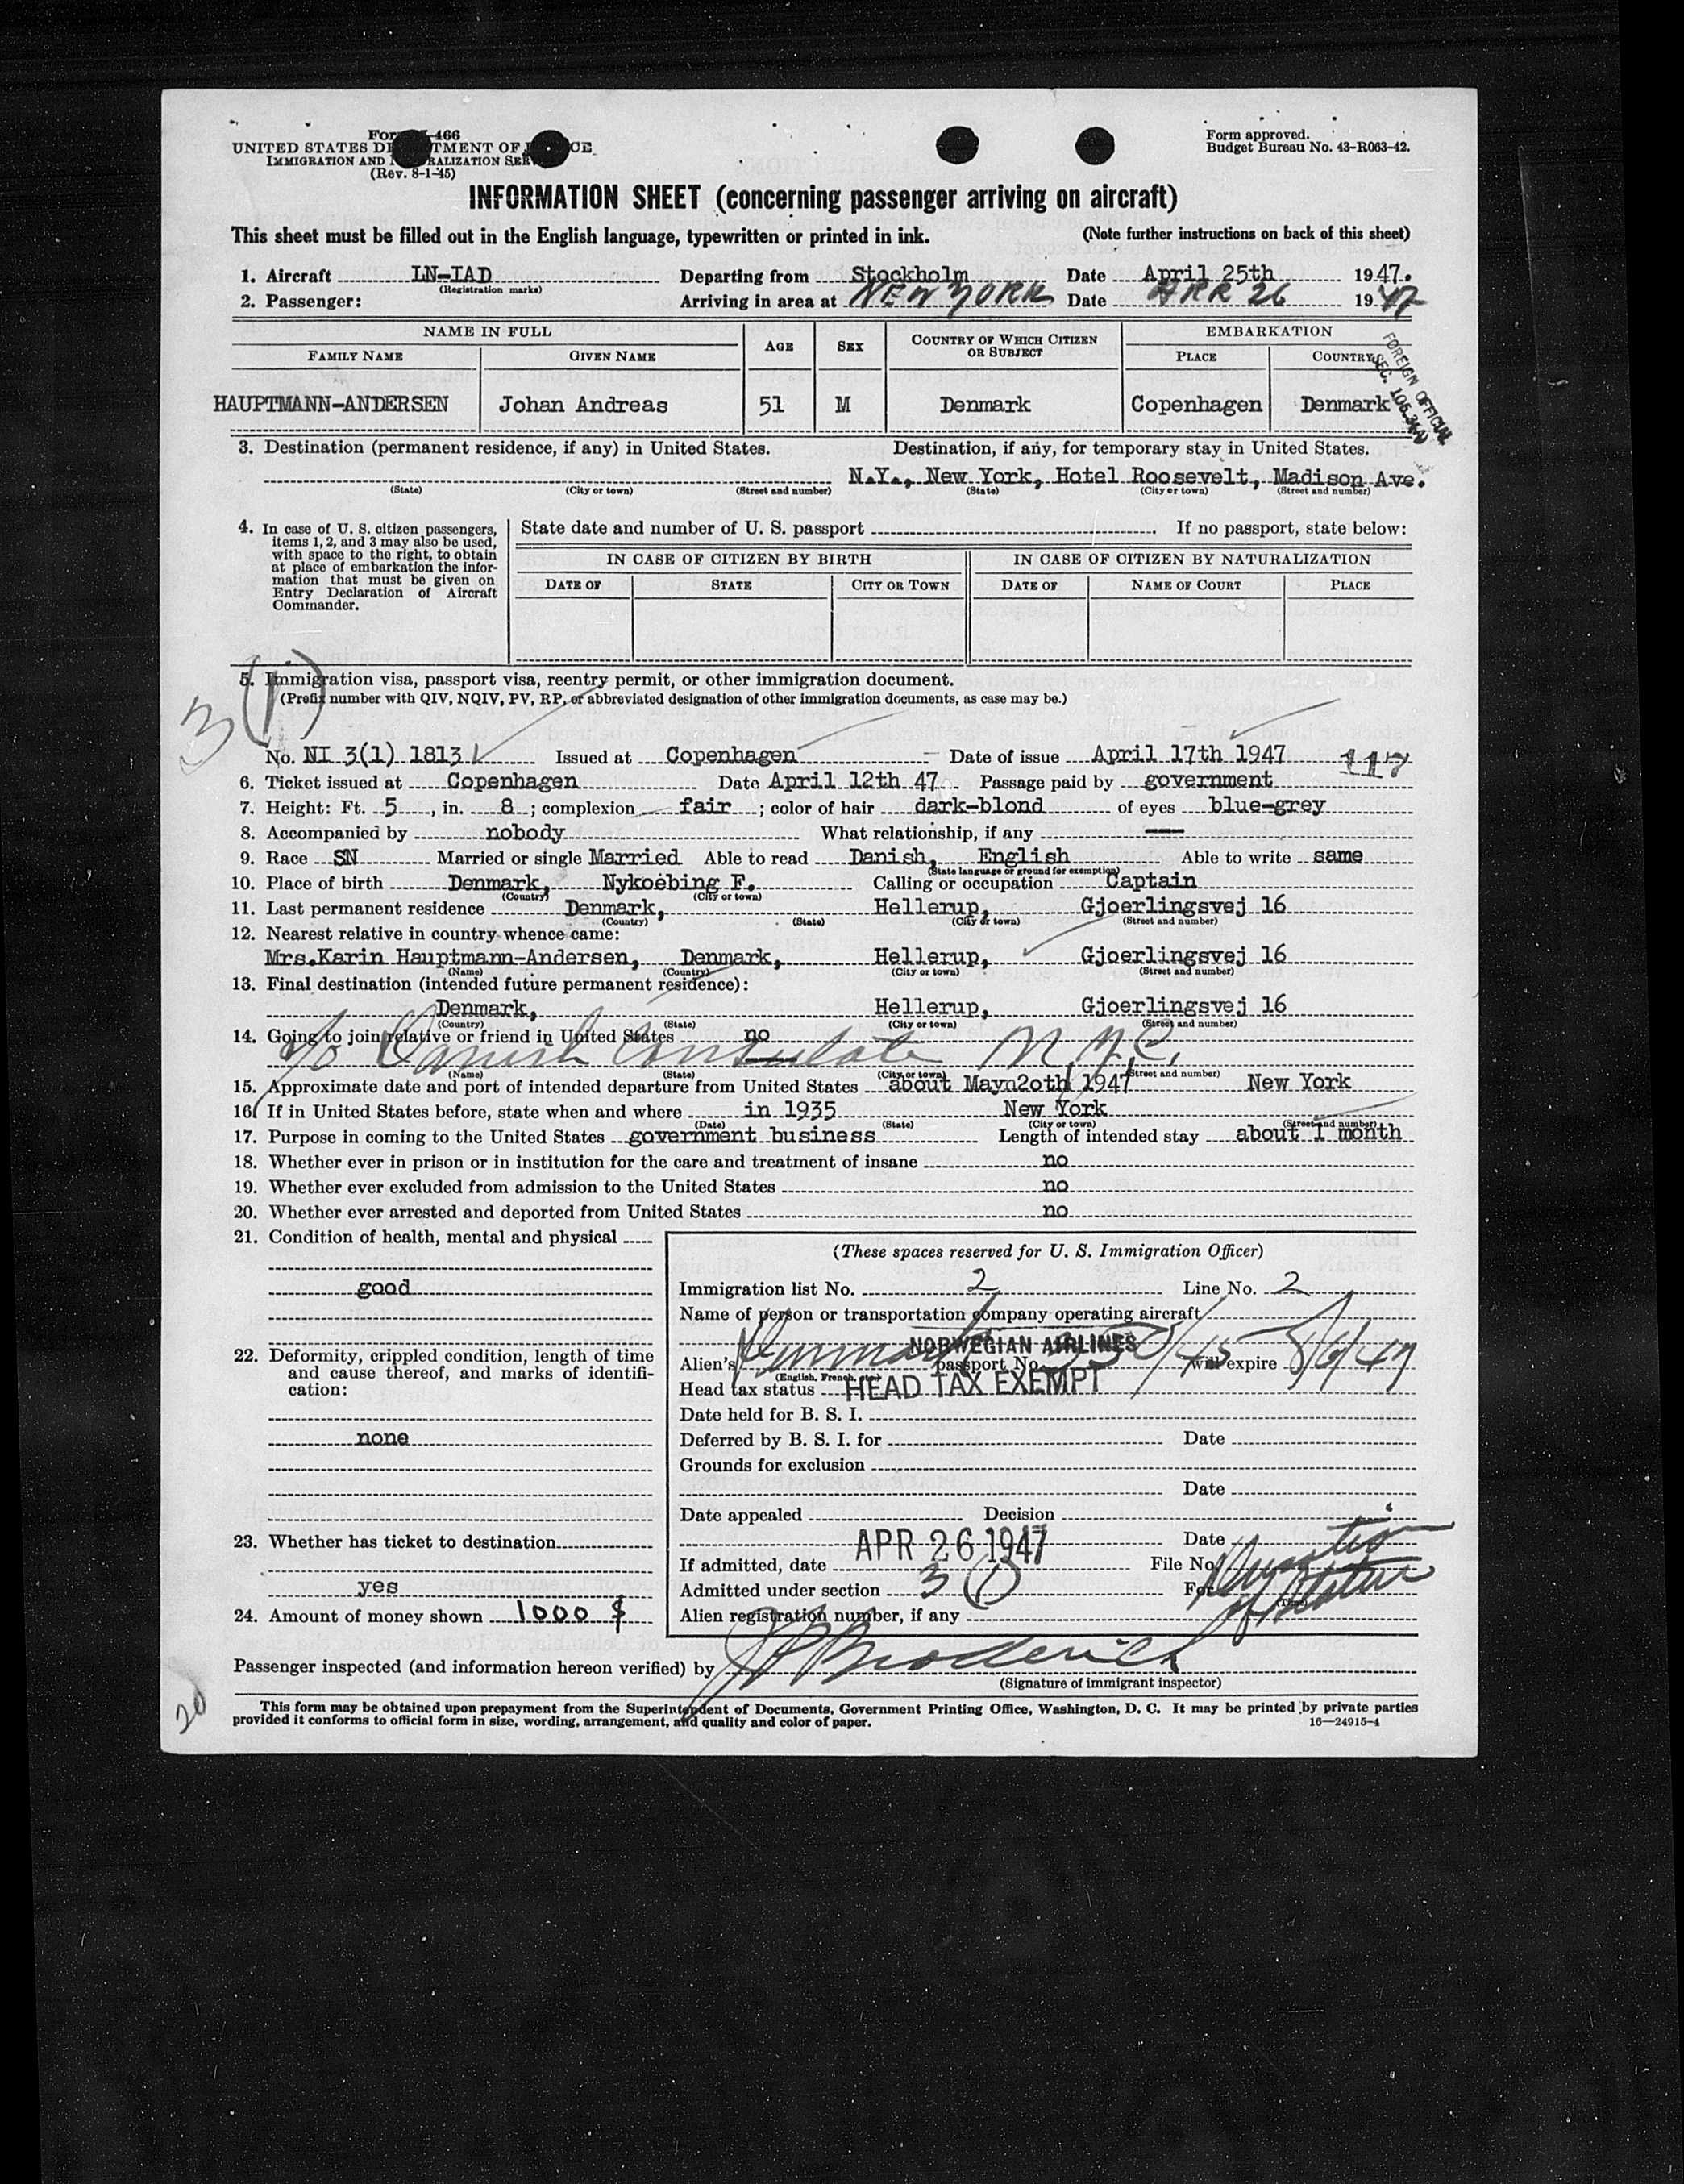 Form I-466
UNITED STATES DEPARTMENT OF JUSTICE
IMMIGRATION AND NATURALIZATION SERVICE
(Rev. 8-1-45)
Form approved.
Budget Bureau No. 43-R063-42.
INFORMATION SHEET (concerning passenger arriving on aircraft)
This sheet must be filled out in the English language, typewritten or printed in ink. (Note further instructions on back of this sheet)
1. Aircraft LN-IAD Departing from Stockholm Date April 25th 1947.
(Registration marks)
2. Passenger: Arriving in area at NEW YORK Date APR 26 1947
NAME IN FULL AGE SEX COUNTRY OF WHICH CITIZEN OR SUBJECT EMBARKATION
FAMILY NAME GIVEN NAME PLACE COUNTRY
FOREIGN OFFICIAL
SEC. 106.3(A)
HAUPTMANN-ANDERSEN Johan Andreas 51 M Denmark Copenhagen Denmark
3. Destination (permanent residence, if any) in United States. Destination, if any, for temporary stay in United States.
N.Y., New York, Hotel Roosevelt, Madison Ave.
(State) (City or town) (Street and number) (State) (City or town) (Street and number)
4. In case of U. S. citizen passengers,
items 1, 2, and 3 may also be used,
with space to the right, to obtain
at place of embarkation the infor-
mation that must be given on
Entry Declaration of Aircraft
Commander.
State date and number of U. S. passport If no passport, state below:
IN CASE OF CITIZEN BY BIRTH IN CASE OF CITIZEN BY NATURALIZATION
DATE OF STATE CITY OR TOWN DATE OF NAME OF COURT PLACE
3(1)
5. Immigration visa, passport visa, reentry permit, or other immigration document.
(Prefix number with QIV, NQIV, PV, RP, or abbreviated designation of other immigration documents, as case may be.)
No. NI 3(1) 1813 Issued at Copenhagen Date of issue April 17th 1947 117
6. Ticket issued at Copenhagen Date April 12th 47 Passage paid by government
7. Height: Ft. 5, in. 8; complexion fair; color of hair dark-blond of eyes blue-grey
8. Accompanied by nobody What relationship, if any —
9. Race SN Married or single Married Able to read Danish, English Able to write same
(State language or ground for exemption)
10. Place of birth Denmark, Nykoebing F. Calling or occupation Captain
(Country) (City or town)
11. Last permanent residence Denmark, Hellerup, Gjoerlingsvej 16
(Country) (State) (City or town) (Street and number)
12. Nearest relative in country whence came:
Mrs.Karin Hauptmann-Andersen, Denmark, Hellerup, Gjoerlingsvej 16
(Name) (Country) (City or town) (Street and number)
13. Final destination (intended future permanent residence):
Denmark, Hellerup, Gjoerlingsvej 16
(Country) (State) (City or town) (Street and number)
14. Going to join relative or friend in United States no
c/o Danish Consulate N.Y.C.
(Name) (State) (City or town) (Street and number)
15. Approximate date and port of intended departure from United States about Mayn2oth 1947 New York
16. If in United States before, state when and where in 1935 New York
(Date) (State) (City or town) (Street and number)
17. Purpose in coming to the United States government business Length of intended stay about 1 month
18. Whether ever in prison or in institution for the care and treatment of insane no
19. Whether ever excluded from admission to the United States no
20. Whether ever arrested and deported from United States no
21. Condition of health, mental and physical
good
22. Deformity, crippled condition, length of time
and cause thereof, and marks of identifi-
cation:
none
23. Whether has ticket to destination
yes
24. Amount of money shown 1000 $
(These spaces reserved for U. S. Immigration Officer)
Immigration list No. 2 Line No. 2
Name of person or transportation company operating aircraft
NORWEGIAN AIRLINES
Alien's Denmark passport No. 350/45 will expire 8/6/49
(English, French, etc.)
Head tax status HEAD TAX EXEMPT
Date held for B. S. I.
Deferred by B. S. I. for Date
Grounds for exclusion
Date
Date appealed Decision
Date
If admitted, date APR 26 1947 File No.
Admitted under section 3(1) For Duration of Status
(Time)
Alien registration number, if any
Passenger inspected (and information hereon verified) by J P Broderick
(Signature of immigrant inspector)
20
This form may be obtained upon prepayment from the Superintendent of Documents, Government Printing Office, Washington, D. C. It may be printed by private parties
provided it conforms to official form in size, wording, arrangement, and quality and color of paper. 16—24915-4